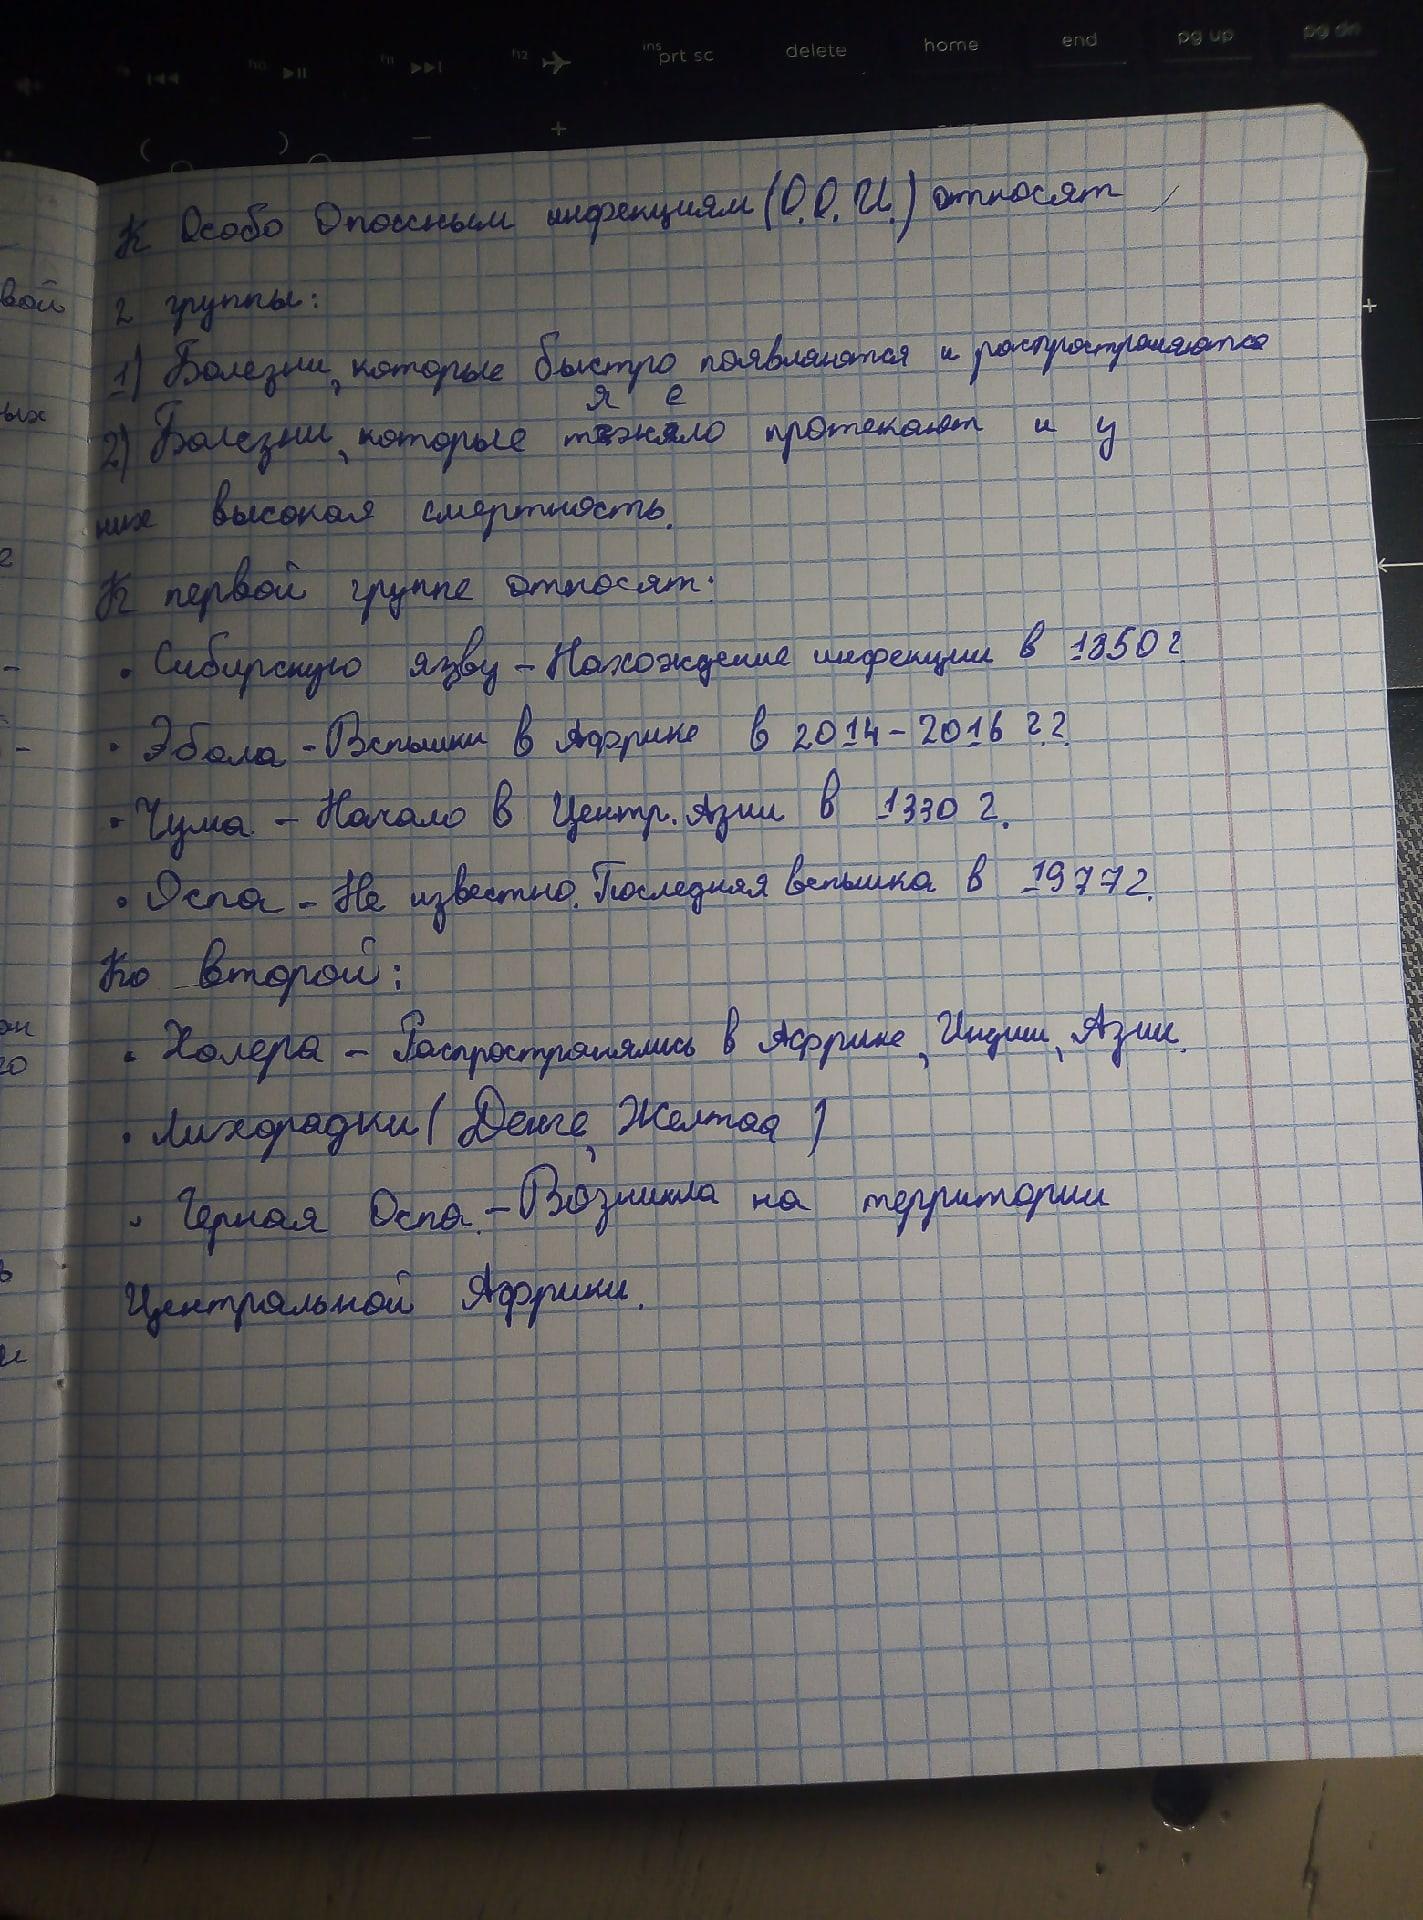 prt sc delete home end pg up pg dn
К Особо Опасным инфекциям (О.О.И.) относят
2 группы:
1) Болезни, которые быстро появляются и распространяются
2) Болезни, которые тяжело протекают и у
них высокая смертность.
К первой группе относят:
• Сибирскую язву - Нахождение инфекции в 1350 г.
• Эбола - Вспышки в Африке в 2014-2016 г.г.
• Чума - Начало в Центр. Азии в 1330 г.
• Оспа - Не известно. Последняя вспышка в 1977 г.
Ко второй:
• Холера - Распространялись в Африке, Индии, Азии.
• Лихорадки (Денге, Желтая)
• Черная Оспа. - Возникла на территории
Центральной Африки.